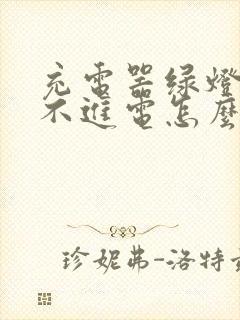 充電器綠燈
不進電怎麼
珍妮弗-洛特